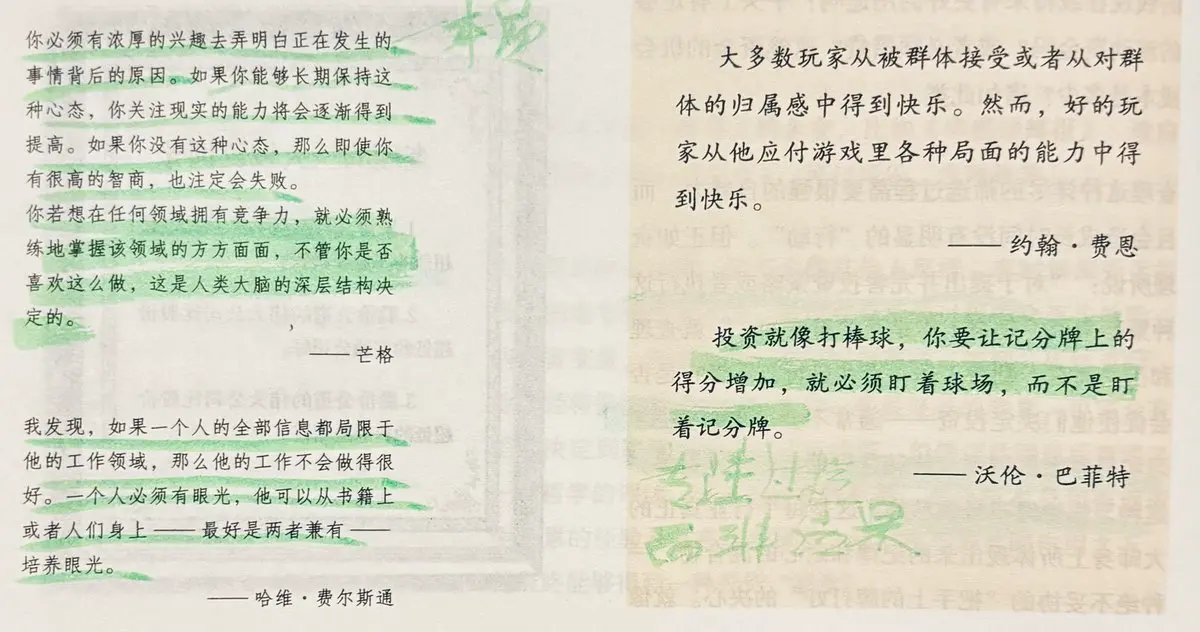 本质
你必须有浓厚的兴趣去弄明白正在发生的
事情背后的原因。如果你能够长期保持这
种心态，你关注现实的能力将会逐渐得到
提高。如果你没有这种心态，那么即使你
有很高的智商，也注定会失败。
你若想在任何领域拥有竞争力，就必须熟
练地掌握该领域的方方面面，不管你是否
喜欢这么做，这是人类大脑的深层结构决
定的。
——芒格
我发现，如果一个人的全部信息都局限于
他的工作领域，那么他的工作不会做得很
好。一个人必须有眼光，他可以从书籍上
或者人们身上——最好是两者兼有——
培养眼光。
——哈维·费尔斯通
大多数玩家从被群体接受或者从对群
体的归属感中得到快乐。然而，好的玩
家从他应付游戏里各种局面的能力中得
到快乐。
——约翰·费恩
投资就像打棒球，你要让记分牌上的
得分增加，就必须盯着球场，而不是盯
着记分牌。
——沃伦·巴菲特
专注过程
而非结果